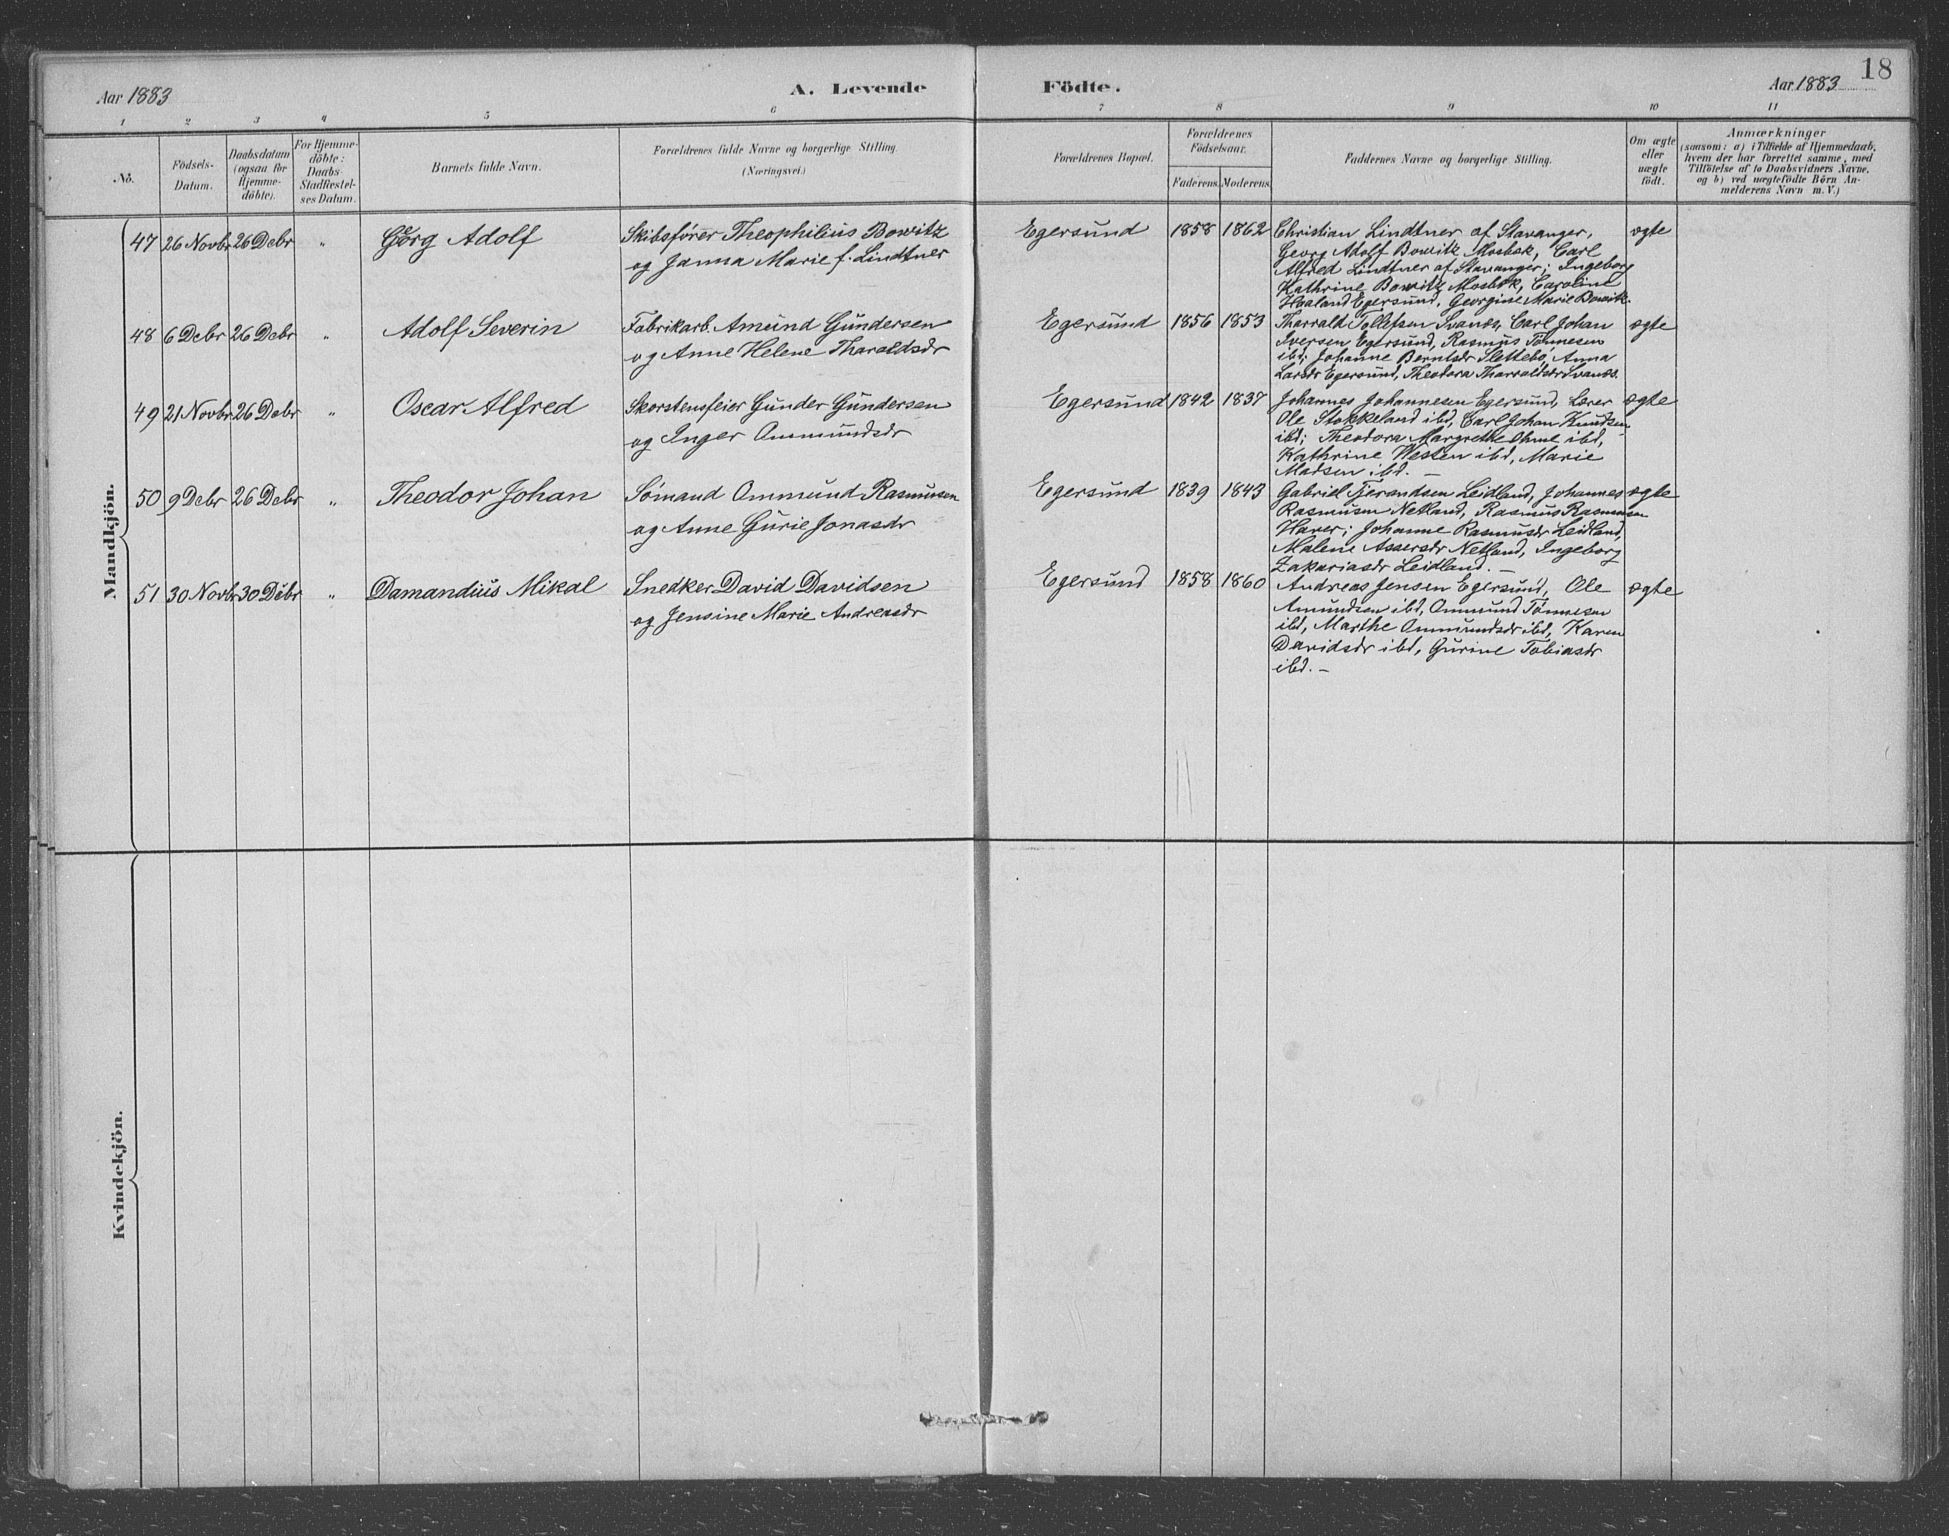 18
Aar 1883
A. Levende
Födte.
Aar 1883
1 2 3 4 5 6 7 8 9 10 11
No.
Födsels-
Datum.
Daabsdatum
(ogsaa for
Hjemme-
döbte).
For Hjemme-
döbte:
Daabs-
Stadfæstel-
ses Datum.
Barnets fulde Navn.
Forældrenes fulde Navne og borgerlige Stilling.
(Næringsvei.)
Forældrenes Bopæl.
Forældrenes
Födselsaar.
Faderens. Moderens.
Faddernes Navne og borgerlige Stilling.
Om ægte
eller
uægte
födt.
Anmærkninger
(saasom: a) i Tilfælde af Hjemmedaab,
hvem der har forrettet samme, med
Tilföielse af to Daabsvidners Navne,
og b) ved uægtefödte Börn An-
melderens Navn m. V.)
Mandkjön.
47 26 Novbr 26 Debr " Georg Adolf
Skibsfører Theophilius Bowitz
og Janna Marie f. Lindtner
Egersund 1858 1862
Christian Lindtner af Stavanger,
Georg Adolf Bowitz Mosbøk, Carl
Alfred Lindtner af Stavanger; Ingeborg
Kathrine Bowitz Mosbøk, Caroline
Haaland Egersund, Georgine Marie Bowitz.
ægte
48 6 Debr 26 Debr " Adolf Severin
Fabrikarb. Amund Gundersen
og Anne Helene Tharaldsdr
Egersund 1856 1853
Tharrald Tollefsen Svanes, Carl Johan
Iversen Egersund, Rasmus Tønnesen
ibd; Johanne Berntsdr Slettebø, Anna
Larsdr Egersund, Theodora Tharraldsdr Svanes.
ægte
49 21 Novbr 26 Debr " Oscar Alfred
Skorstensfeier Gunder Gundersen
og Inger Ommundsdr
Egersund 1842 1837
Johannes Johannesen Egersund, Lærer
Ole Stokkeland ibd, Carl Johan Knudsen
ibd; Theodora Margrethe Ohme ibd,
Kathrine Westen ibd, Marie
Madsen ibd. –
ægte
50 9 Debr 26 Debr " Theodor Johan
Sømand Ommund Rasmussen
og Anne Gurie Jonasdr
Egersund 1839 1843
Gabriel Tjerandsen Leidland, Johannes
Rasmusen Netland, Rasmus Rasmusen
Haver; Johanne Rasmusdr Leidland,
Malene Assersdr Netland, Ingeborg
Zakariasdr Leidland. –
ægte
51 30 Novbr 30 Debr " Damandius Mikal
Snedker David Davidsen
og Jensine Marie Andreasdr
Egersund 1858 1860
Andreas Jensen Egersund, Ole
Amundsen ibd, Ommund Tønnesen
ibd, Marthe Ommundsdr ibd, Karen
Davidsdr ibd, Gurine Tobiasdr
ibd. –
ægte
Kvindekjön.